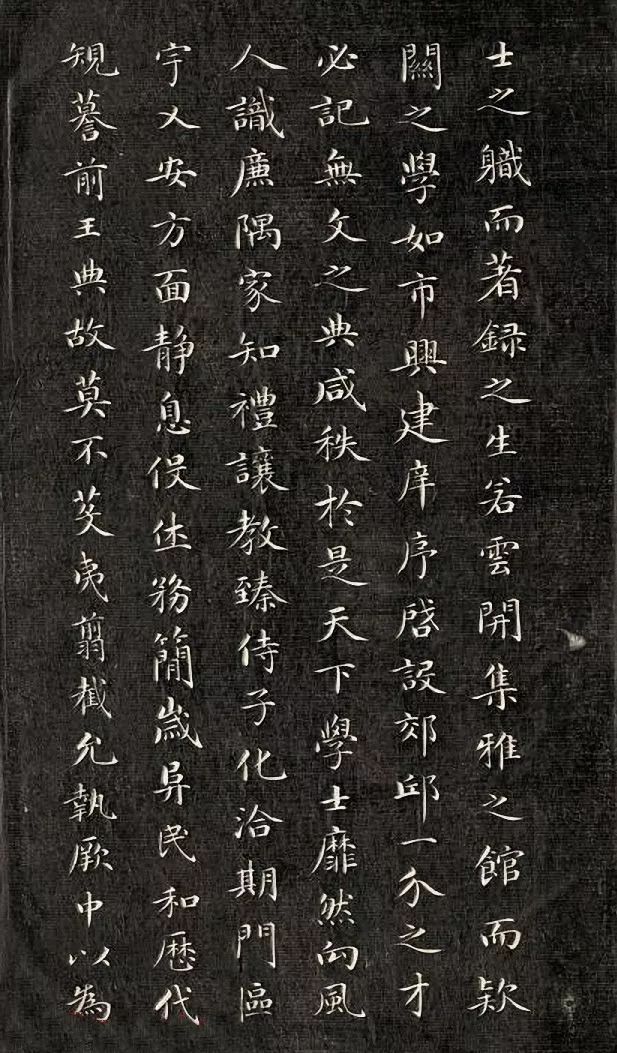 士之職而著録之生若雲開集雅之館而欵
關之學如市興建庠序啓設郊邱一介之才
必記無文之典咸秩於是天下學士靡然向風
人識廉隅家知禮讓教臻侍子化洽期門區
宇乂安方面静息役休務簡歲昇民和歷代
規謩前王典故莫不芟夷翦截允執厥中以為